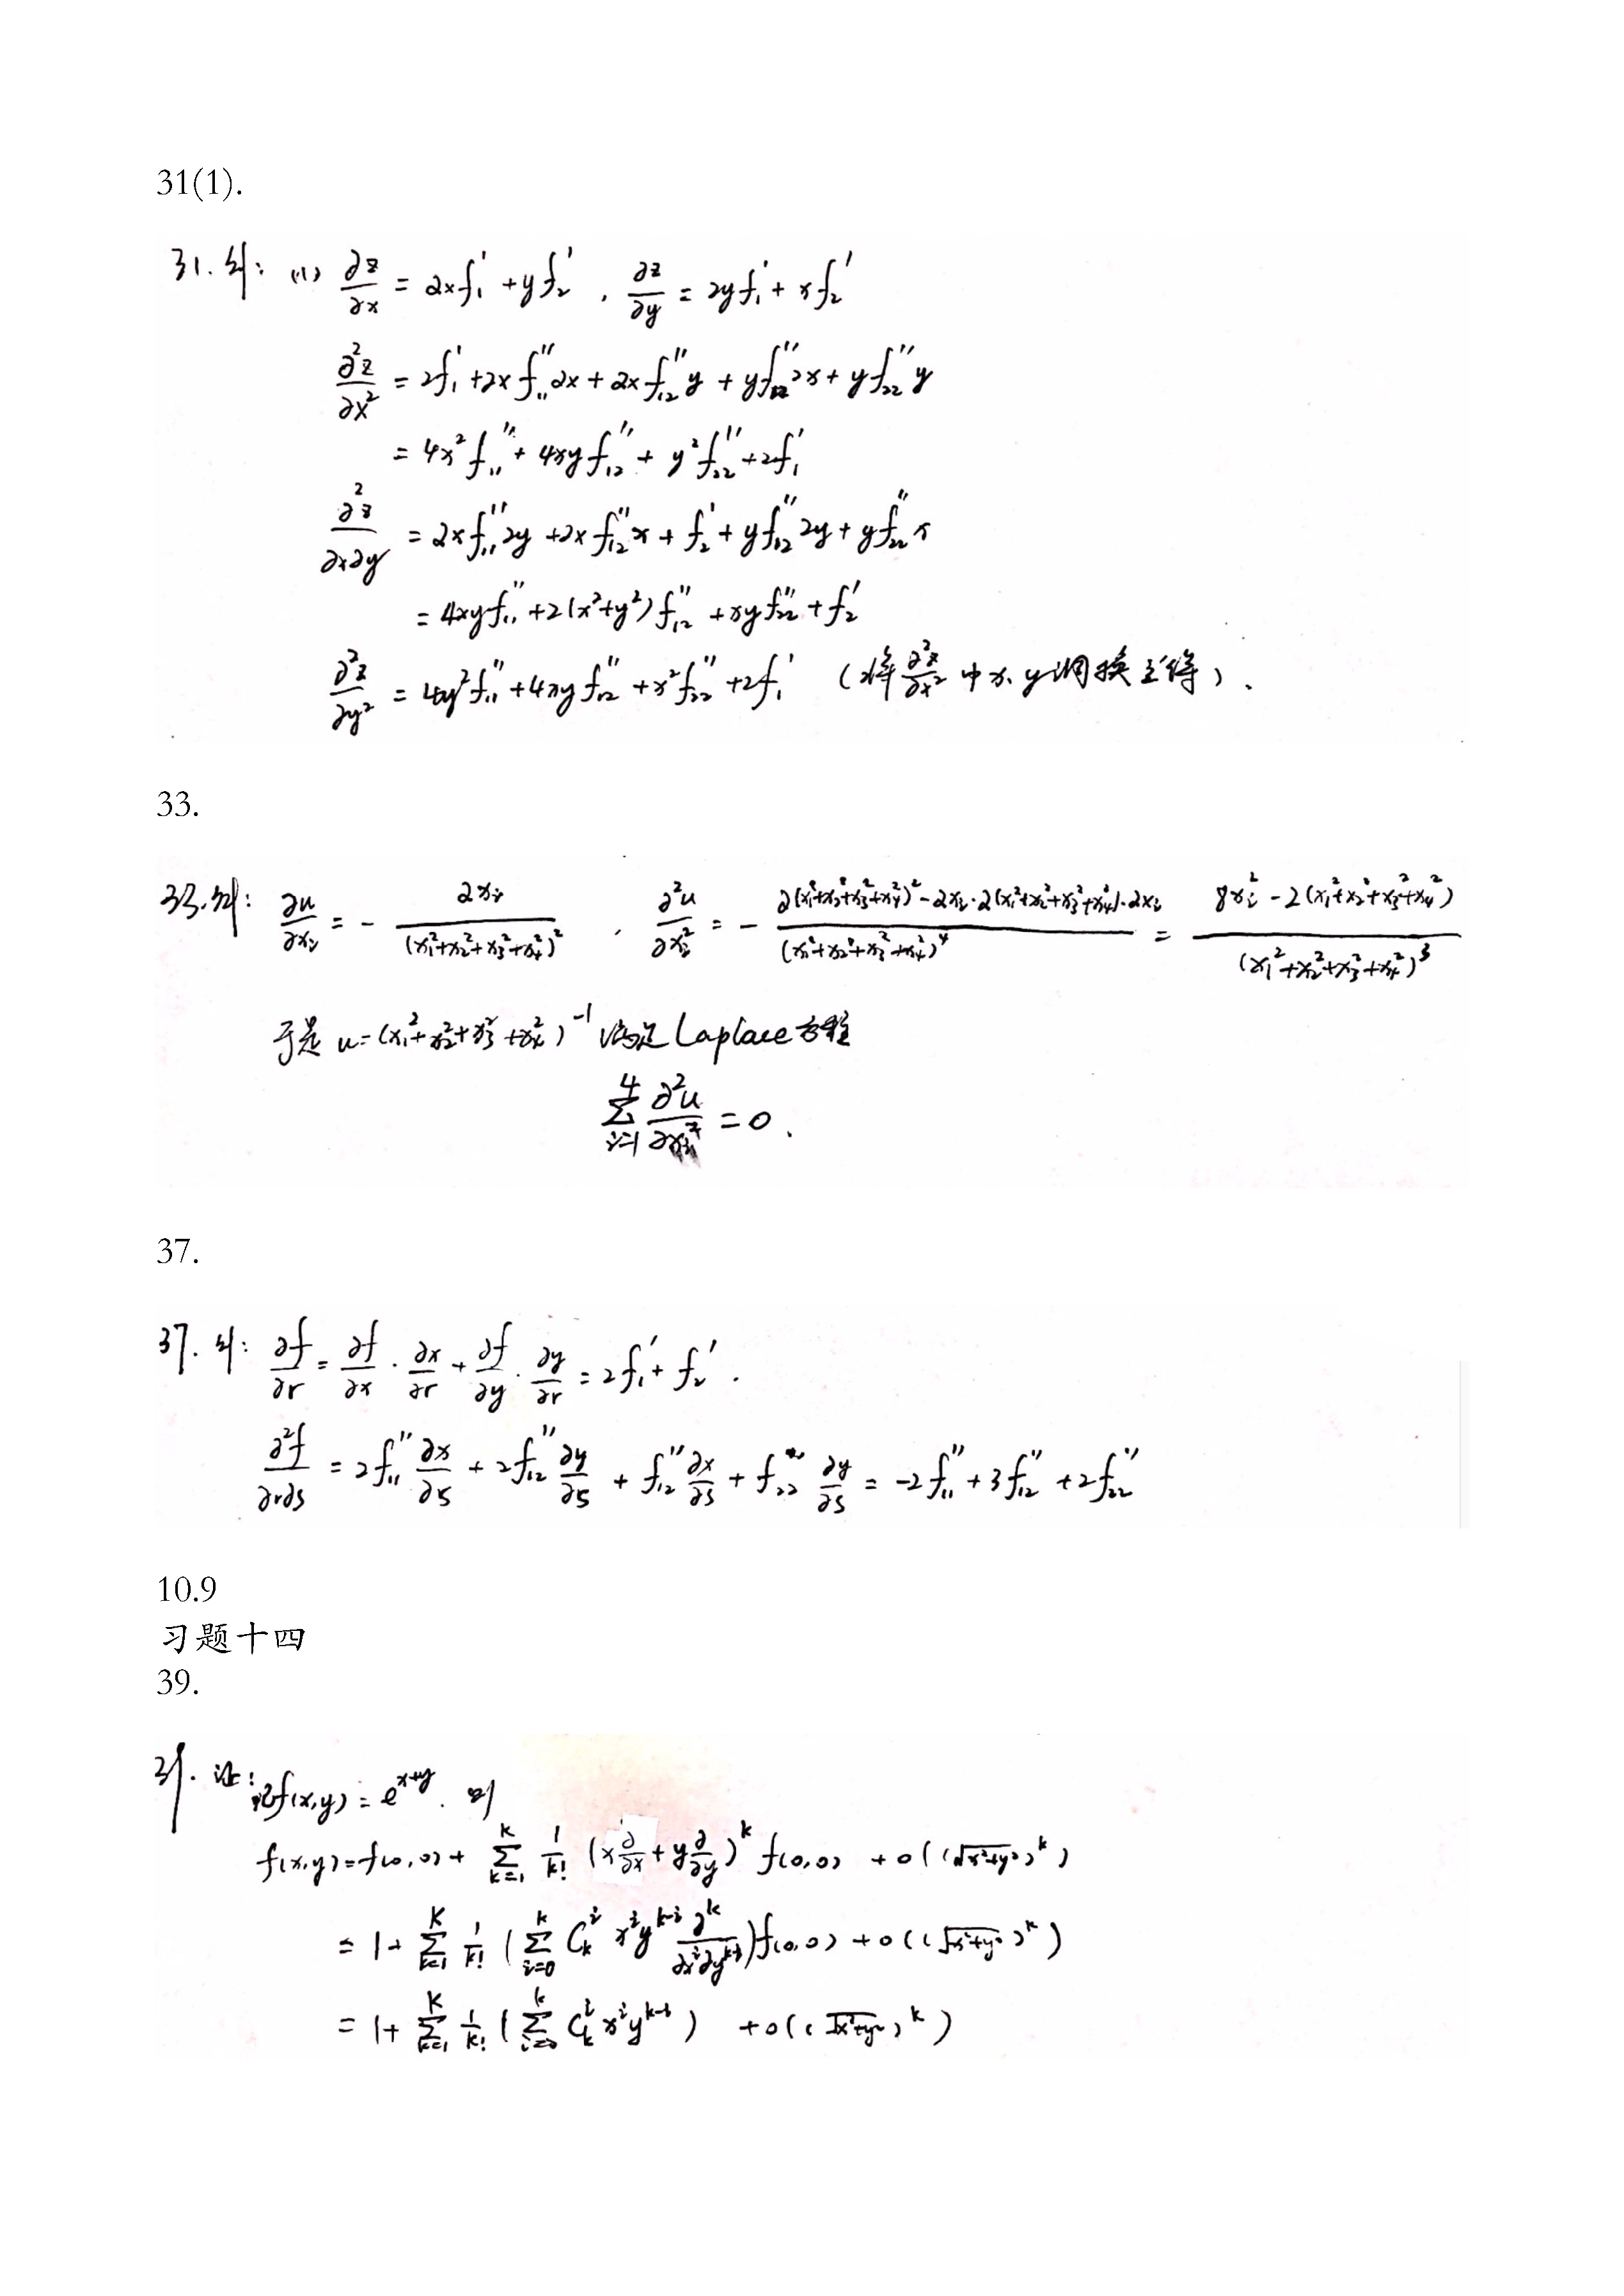 31(1).
31. 解: (1) ∂z/∂x = 2xf₁' + yf₂' , ∂z/∂y = 2yf₁' + xf₂'
∂²z/∂x² = 2f₁' + 2xf₁₁''2x + 2xf₁₂''y + yf₁₂''2x + yf₂₂''y
= 4x²f₁₁'' + 4xyf₁₂'' + y²f₂₂'' + 2f₁'
∂²z/∂x∂y = 2xf₁₁''2y + 2xf₁₂''x + f₂' + yf₁₂''2y + yf₂₂''x
= 4xyf₁₁'' + 2(x²+y²)f₁₂'' + xyf₂₂'' + f₂'
∂²z/∂y² = 4y²f₁₁'' + 4xyf₁₂'' + x²f₂₂'' + 2f₁' (将∂²z/∂x²中x、y调换立得).
33.
33.解: ∂u/∂xᵢ = - 2xᵢ/(x₁²+x₂²+x₃²+x₄²)² , ∂²u/∂xᵢ² = - (2(x₁²+x₂²+x₃²+x₄²)² - 2xᵢ·2(x₁²+x₂²+x₃²+x₄²)·2xᵢ)/(x₁²+x₂²+x₃²+x₄²)⁴ = (8xᵢ² - 2(x₁²+x₂²+x₃²+x₄²))/(x₁²+x₂²+x₃²+x₄²)³
于是 u=(x₁²+x₂²+x₃²+x₄²)⁻¹ 满足Laplace方程
∑ᵢ₌₁⁴ ∂²u/∂xᵢ² = 0.
37.
37. 解: ∂f/∂r = ∂f/∂x · ∂x/∂r + ∂f/∂y · ∂y/∂r = 2f₁' + f₂' .
∂²f/∂r∂s = 2f₁₁'' ∂x/∂s + 2f₁₂'' ∂y/∂s + f₁₂'' ∂x/∂s + f₂₂'' ∂y/∂s = -2f₁₁'' + 3f₁₂'' + 2f₂₂''
10.9
习题十四
39.
39. 证: 记f(x,y) = e^(x+y). 则
f(x,y) = f(0,0) + ∑ₖ₌₁^K 1/k! (x∂/∂x + y∂/∂y)^k f(0,0) + o((√(x²+y²))^k)
= 1 + ∑ₖ₌₁^K 1/k! (∑ᵢ₌₀^k Cₖⁱ xⁱy^(k-i) ∂^k/∂xⁱ∂y^(k-i)) f(0,0) + o((√(x²+y²))^k)
= 1 + ∑ₖ₌₁^K 1/k! (∑ᵢ₌₀^k Cₖⁱ xⁱy^(k-i)) + o((√(x²+y²))^k)